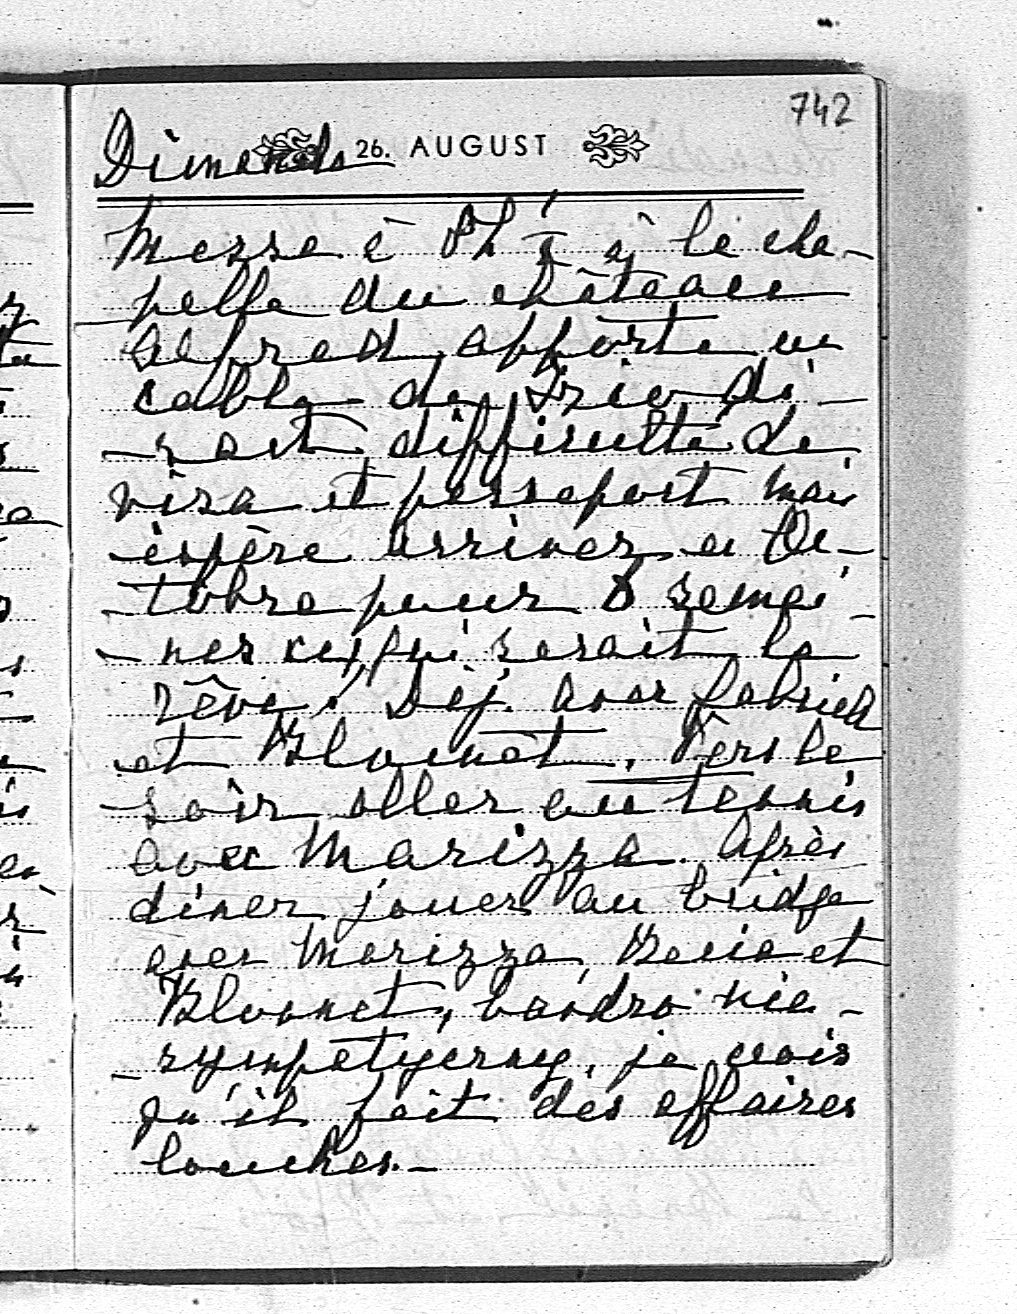 742
Dimanche 26. AUGUST
Messe à 8h à la cha-
pelle du château
Alfred apporte un
cable de
difficulté de
visa et passeport mais
espère arriver en Oc-
tobre pour 6 semai-
nes ce qui serait le
rêve! Déj. avec Gabriel
et Vers le
soir aller au tennis
avec Marizza. Après
diner jouer au bridge
avec Marizza, et
bardzo nie-
sympatyczny, je crois
qu'il fait des affaires
louches.-